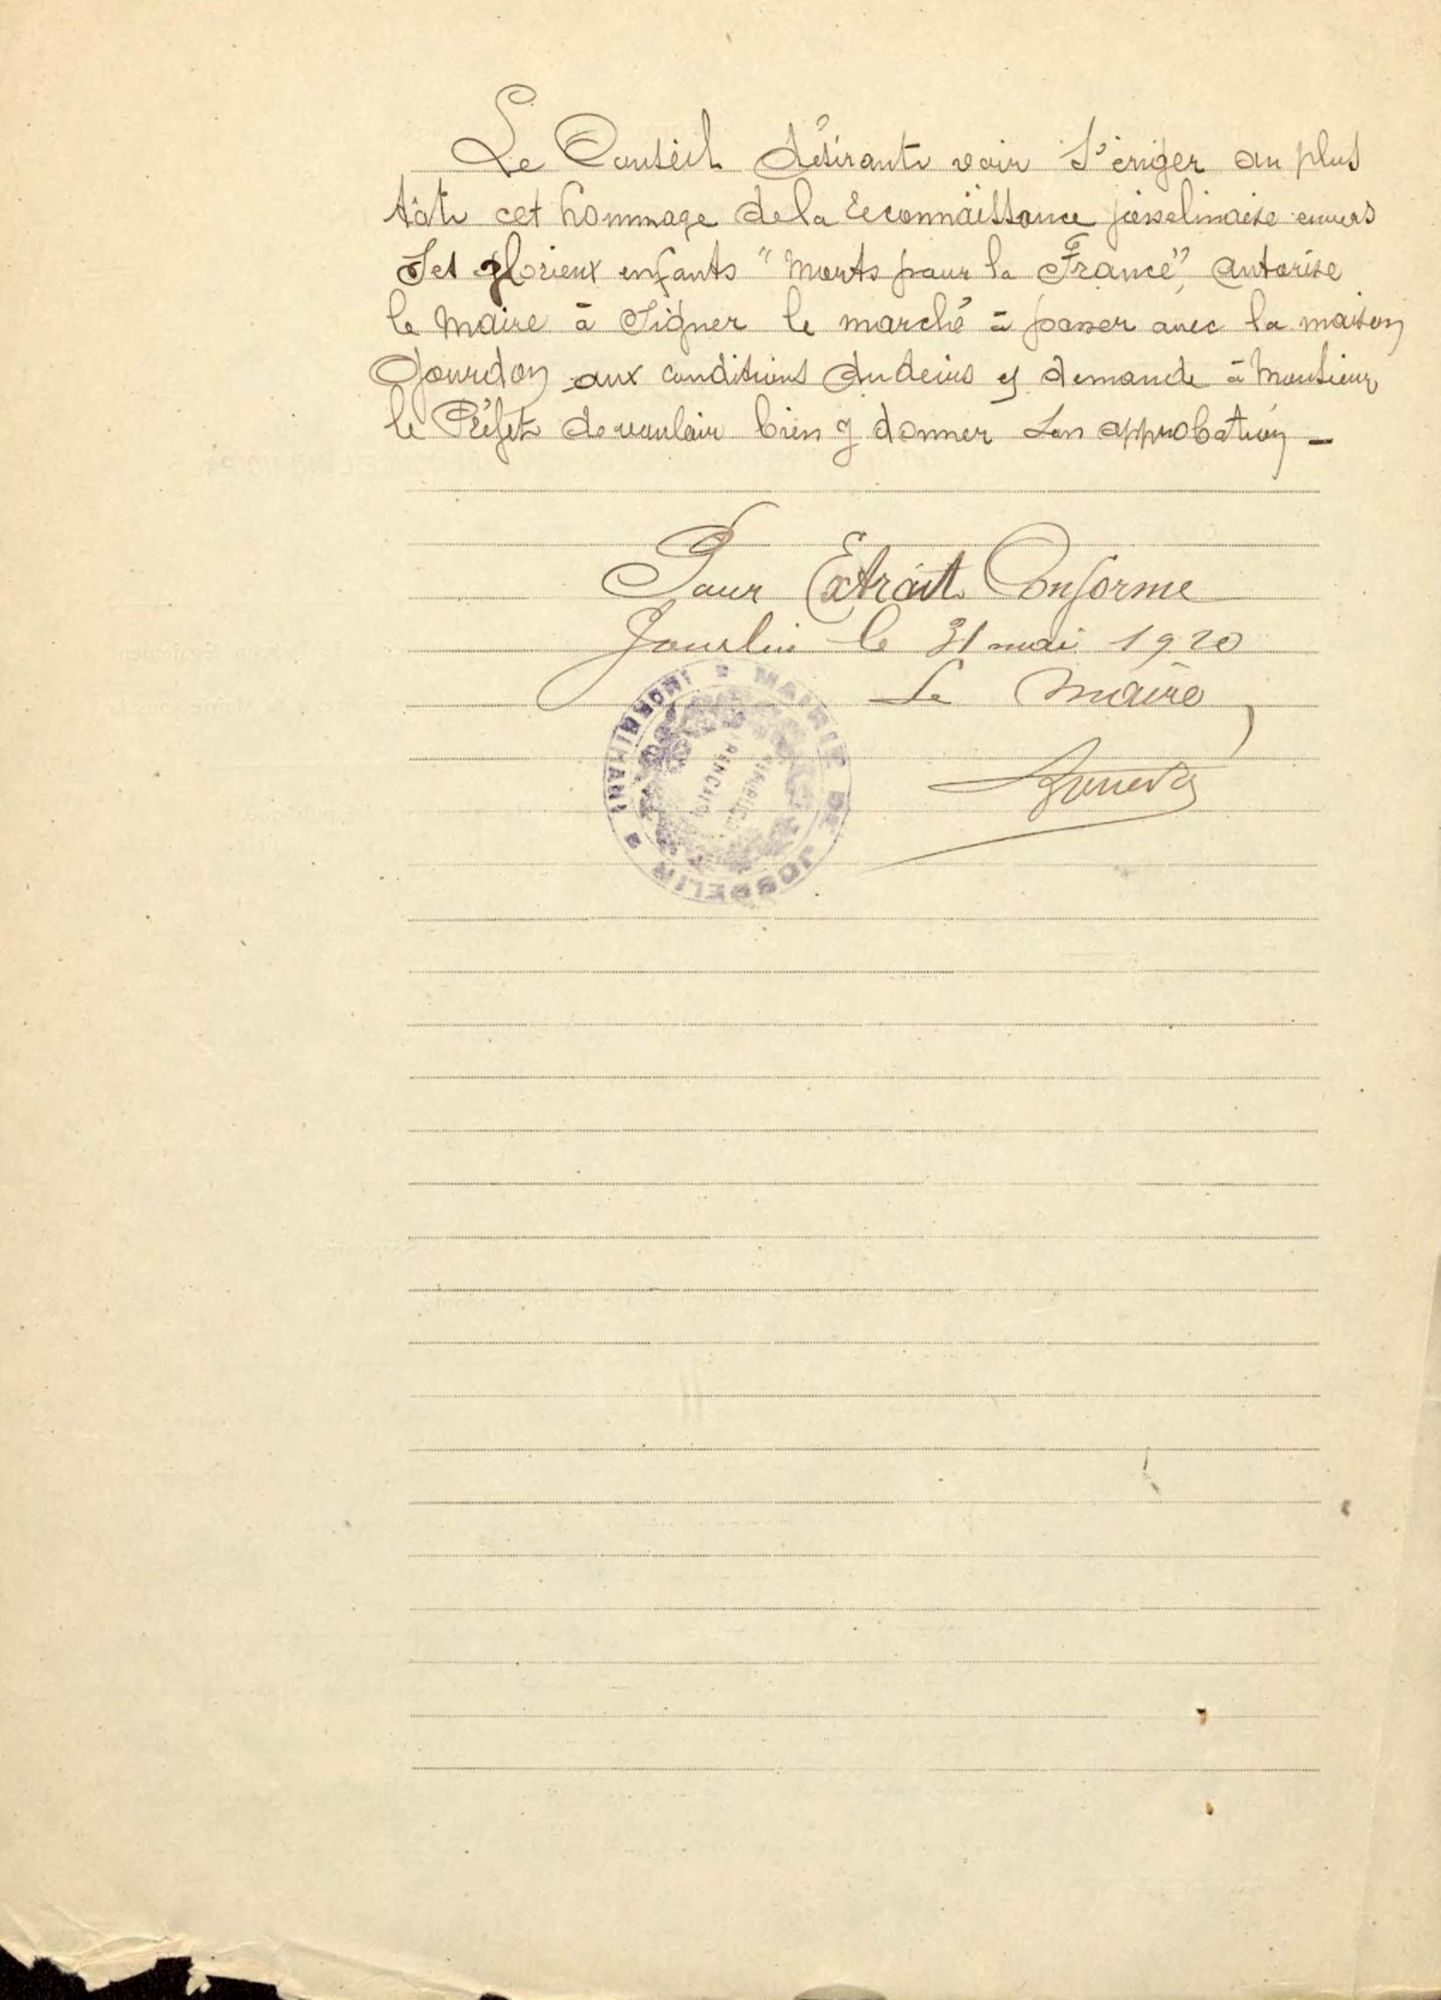 Le Conseil désirant voir s'ériger au plus
tôt cet hommage de la reconnaissance josselinaise envers
ses glorieux enfants "Morts pour la France", autorise
le Maire à signer le marché à passer avec la maison
Gourdon aux conditions du devis et demande à Monsieur
le Préfet de vouloir bien y donner son approbation -
Pour Extrait Conforme
Josselin le 31 mai 1920
Le Maire
MAIRIE DE JOSSELIN
(MORBIHAN)
RÉPUBLIQUE
FRANÇAISE